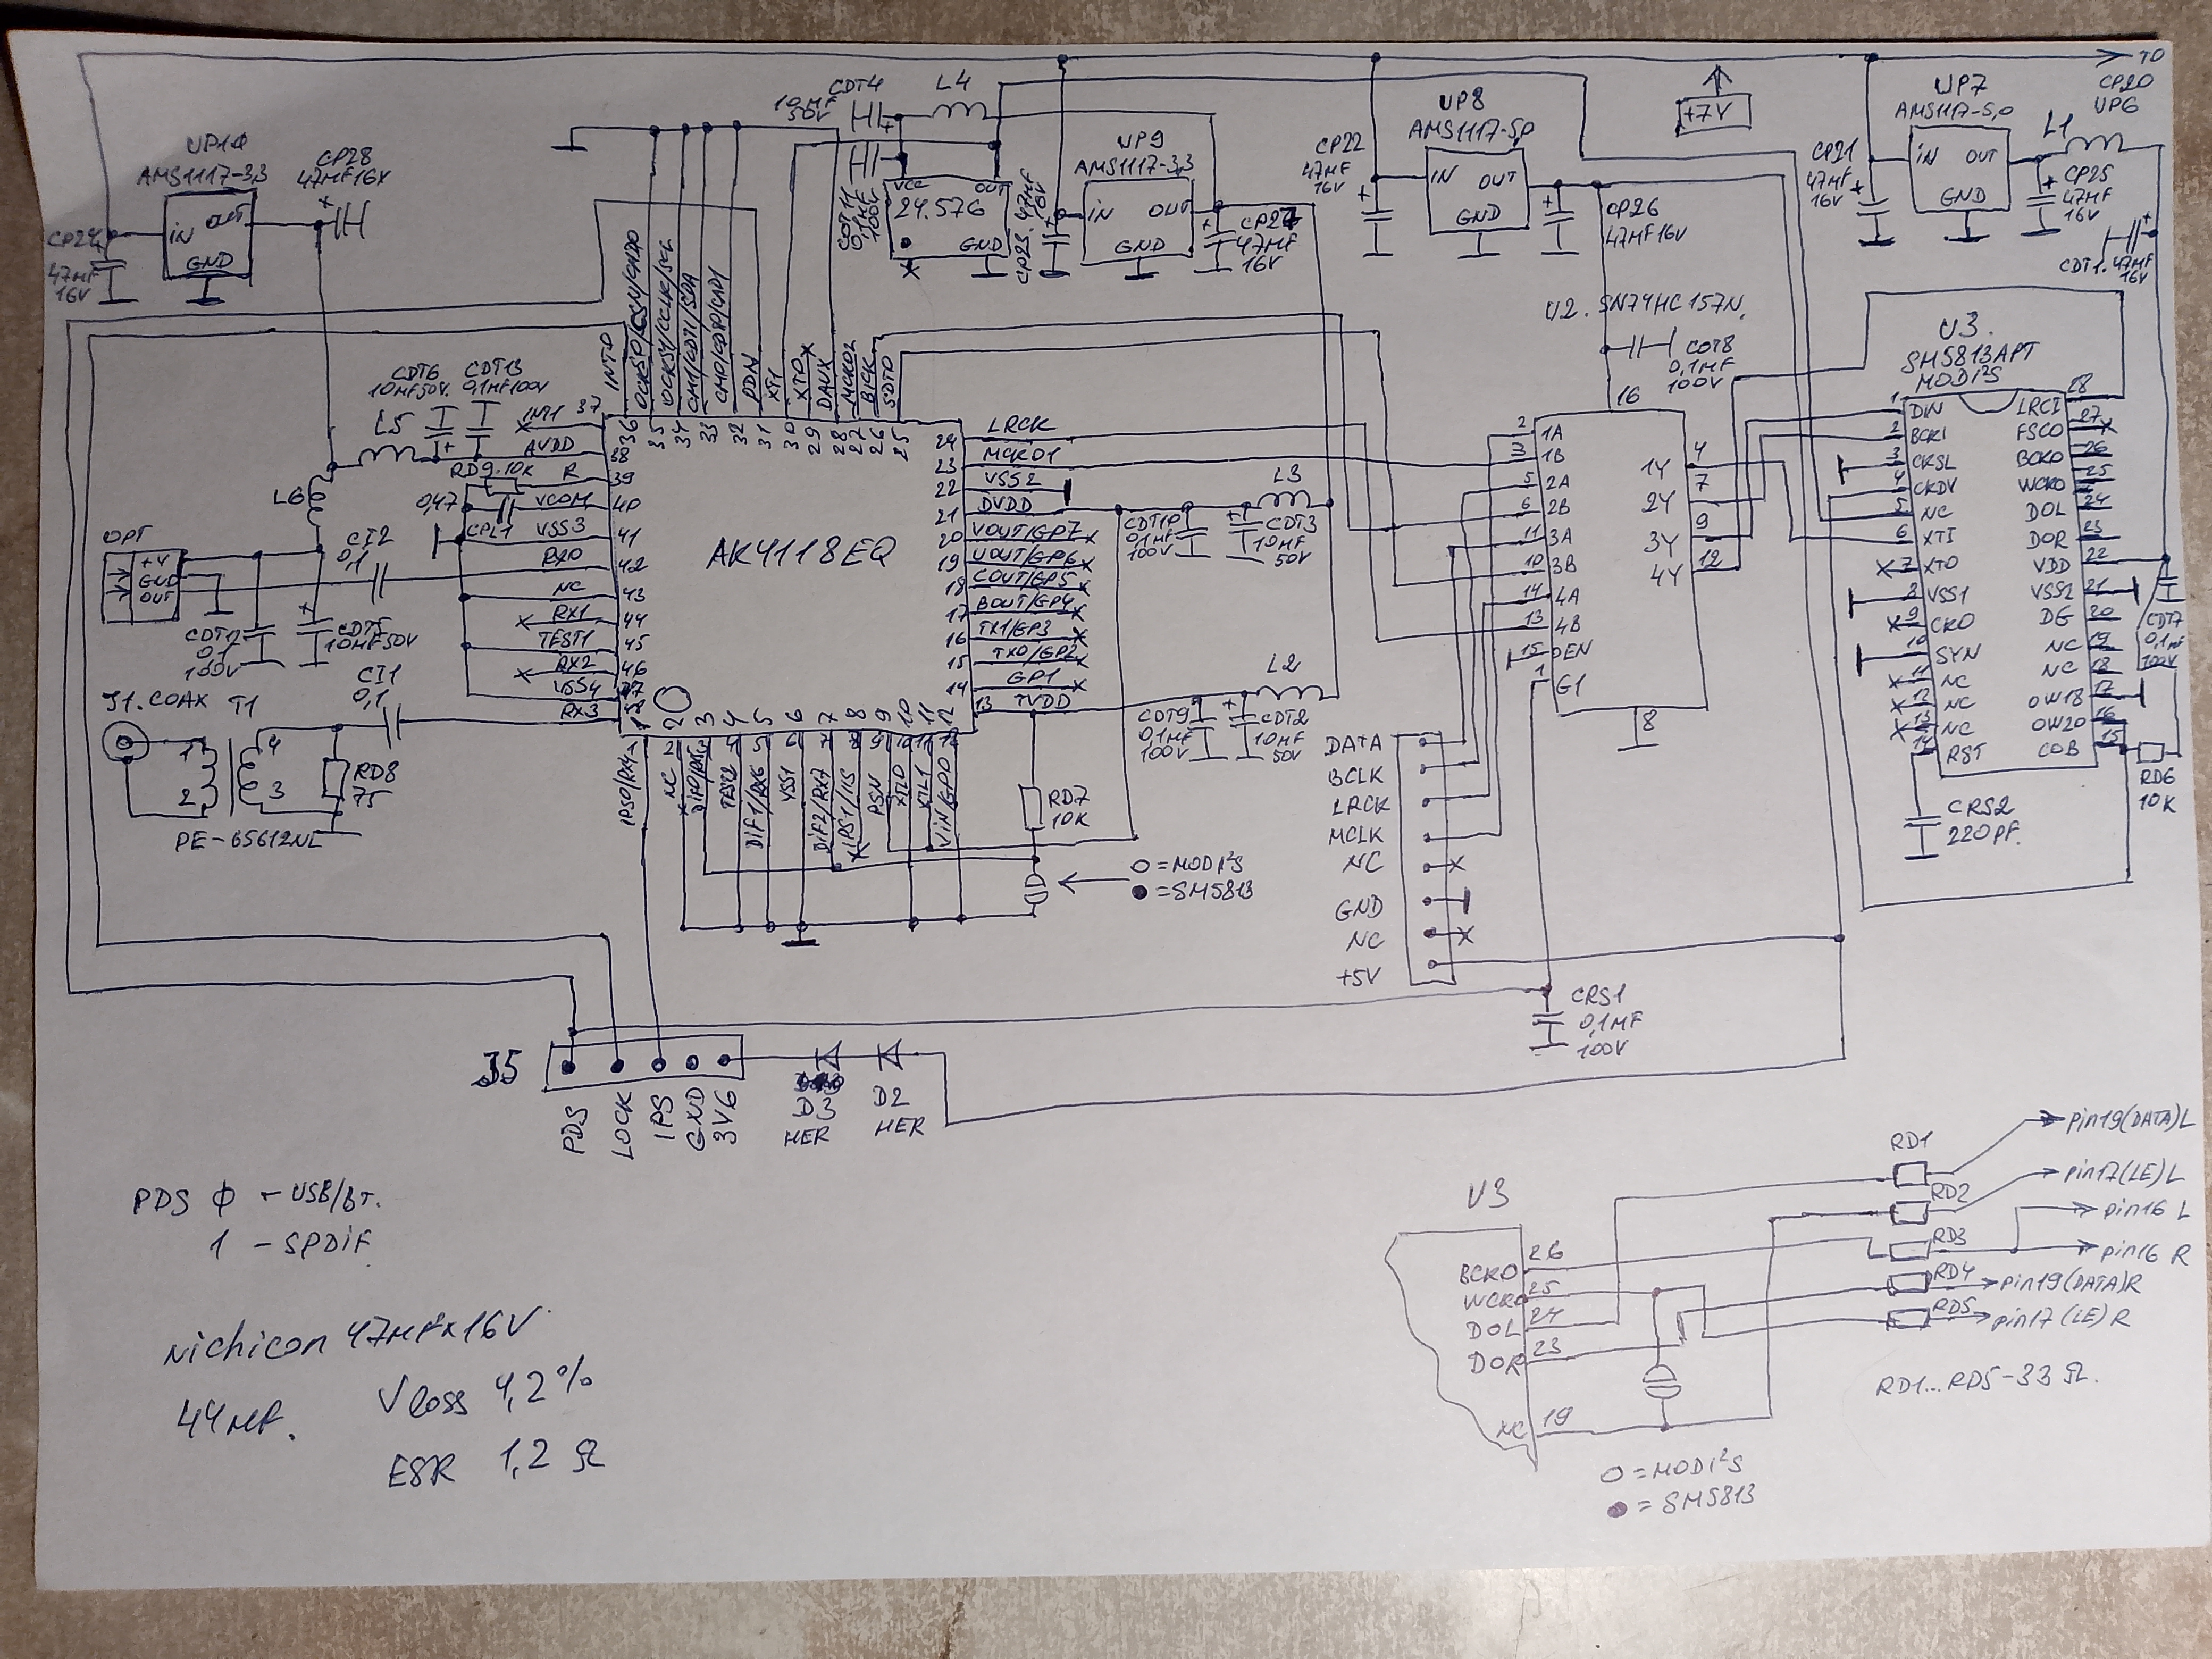 TO
CP20
UP6
+7V
UP7
AMS1117-5,0
IN OUT
GND
L1
CP21
47MF
16V
CP25
47MF
16V
CDT1. 47MF
16V
UP8
AMS1117-5,0
IN OUT
GND
CP22
47MF
16V
CP26
47MF 16V
UP9
AMS1117-3,3
IN OUT
GND
CP23. 47MF
16V
CP27
47MF
16V
CDT4
10MF
50V
L4
CDT11
0,1MF
100V
VCC OUT
24.576
GND
AMS1117-3,3
IN OUT
GND
CP28
47MF16V
47MF
16V
U2. SN74HC157N.
CDT8
0,1MF
100V
16
2 1A
3 1B
5 2A
6 2B
11 3A
10 3B
14 4A
13 4B
15 EN
1 G1
1Y 4
2Y 7
3Y 9
4Y 12
8
U3.
SM5813APT
MODI²S
1 DIN
2 BCKI
3 CKSL
4 CKDV
5 NC
6 XTI
7 XTO
8 VSS1
9 CKO
10 SYN
11 NC
12 NC
13 NC
14 RST
LRCI 28
FSCO 27
BCKO 26
WCKO 25
DOL 24
DOR 23
VDD 22
VSS2 21
DG 20
NC 19
NC 18
OW18 17
OW20 16
COB 15
CDT7
0,1MF
100V
RD6
10K
CRS2
220PF.
CDT6
10MF50V
CDT13
0,1MF100V
L5
L6
RD9.10K
0,47
CPL1
INT0
OCKS0/CSN/CAD0
OCKS1/CCLK/SCL
CM1/CDTI/SDA
CM0/CDTO/CAD1
PDN
XTI
XTO
DAUX
MCKO2
BICK
SDTO
36 35 34 33 32 31 30 29 28 27 26 25
INT1 37
AVDD 38
R 39
VCOM 40
VSS3 41
RX0 42
NC 43
RX1 44
TEST1 45
RX2 46
VSS4 47
RX3
AK4118EQ
24 LRCK
23 MCKO1
22 VSS2
21 DVDD
20 VOUT/GP7
19 UOUT/GP6
18 COUT/GP5
17 BOUT/GP4
16 TX1/GP3
15 TX0/GP2
14 GP1
13 TVDD
1 2 3 4 5 6 7 8 9 10 11 12
IPS0/RX4
NC
DIF0/RX5
TEST2
DIF1/RX6
VSS1
DIF2/RX7
IPS1/IIS
PSN
XTL0
XTL1
VIN/GP0
L3
CDT10
0,1MF
100V
CDT3
10MF
50V
L2
CDT9
0,1MF
100V
CDT2
10MF
50V
RD7
10K
O = MODI²S
● = SM5813
OPT
+V
GND
OUT
CI2
0,1
CDT12
0,1
100V
CDT5
10MF50V
CI1
0,1
J1. COAX T1
1 4
2 3
RD8
75
PE-65612NL
DATA
BCLK
LRCK
MCLK
NC
GND
NC
+5V
CRS1
0,1MF
100V
J5
PDS
LOCK
IPS
GND
3V6
D3
HER
D2
HER
PDS 0 - USB/BT.
1 - SPDIF
Nichicon 47MFx16V
44MF. Vloss 4,2%
ESR 1,2 Ω
U3
BCKO 26
WCKO 25
DOL 24
DOR 23
NC 19
RD1
RD2
RD3
RD4
RD5
pin19(DATA)L
pin17(LE)L
pin16 L
pin16 R
pin19(DATA)R
pin17(LE)R
RD1...RD5-33 Ω.
O = MODI²S
● = SM5813